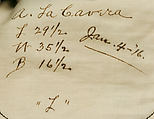 A. La Cavera
L 29 1/2
W 35 1/2 Jan. 4-16.
B 16 1/2
"L"